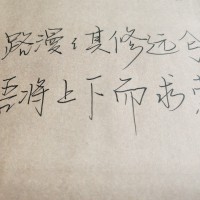 路漫々其修远兮
吾将上下而求